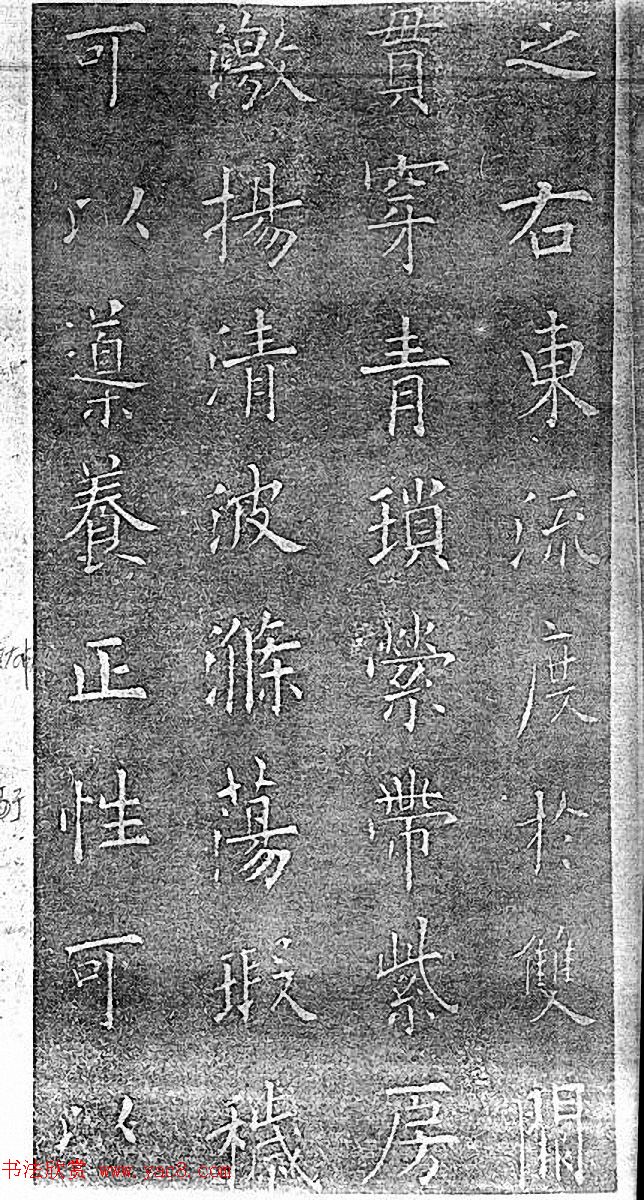 之右東流度於雙闕
貫穿青瑣縈帶紫房
激揚清波滌蕩瑕穢
可以導養正性可以
书法欣赏 www.yac8.com